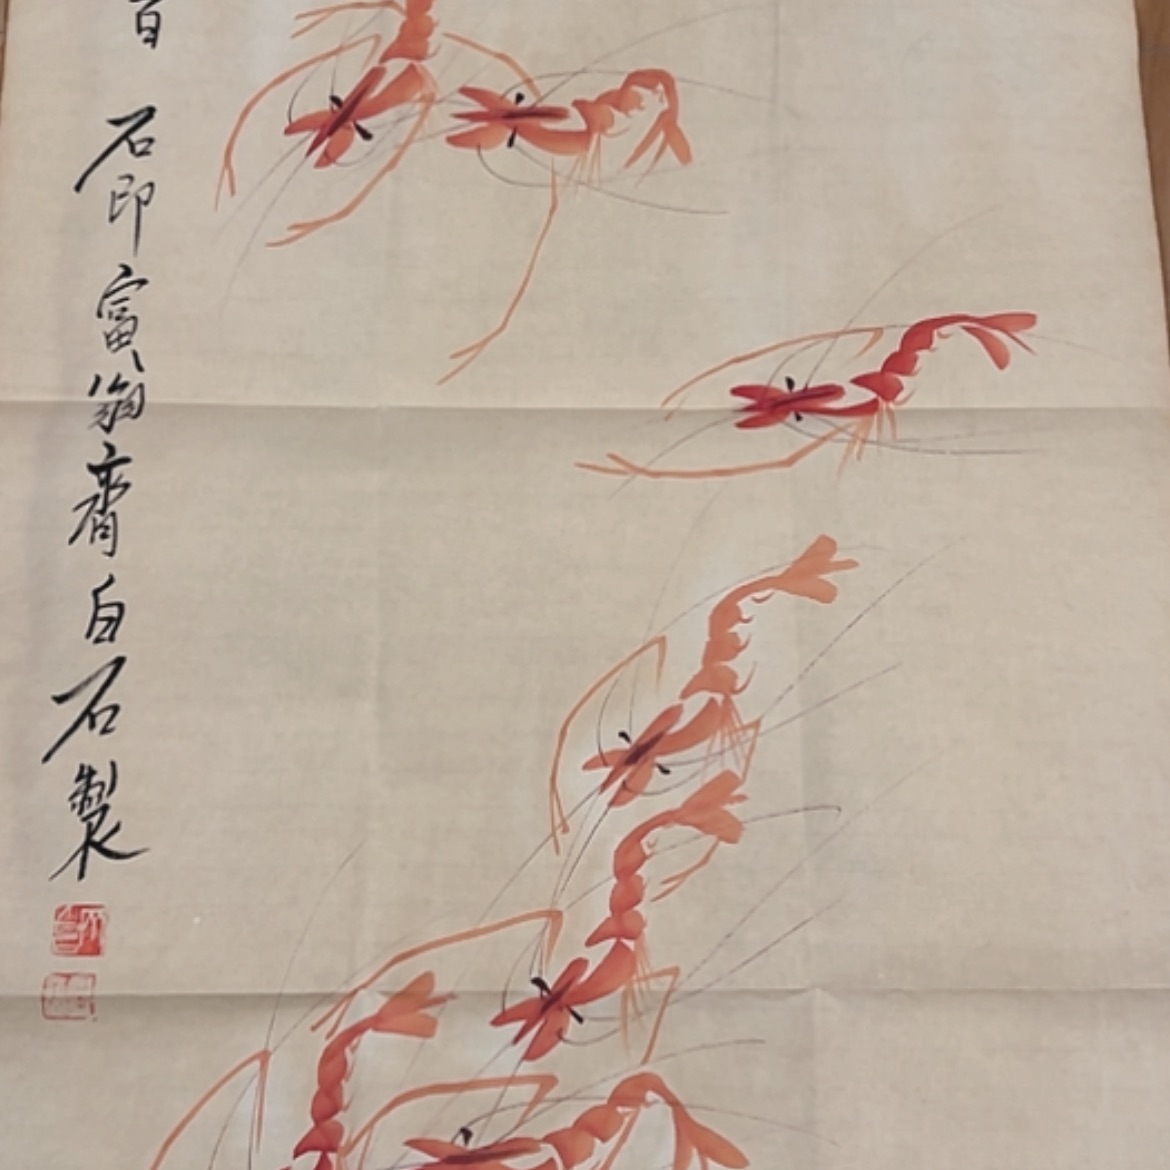 百石印富翁齊白石製